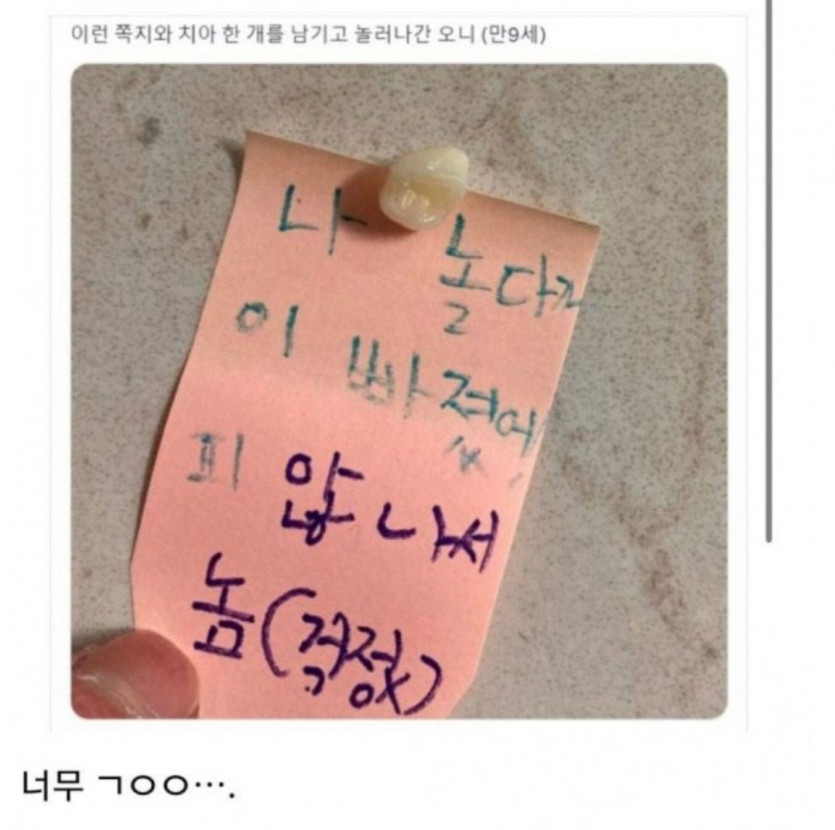 이런 쪽지와 치아 한 개를 남기고 놀러나간 오니 (만9세)
나 놀다가
이 빠졌어
피 않 나서
놈 (걱정X)
너무 ㄱㅇㅇ….